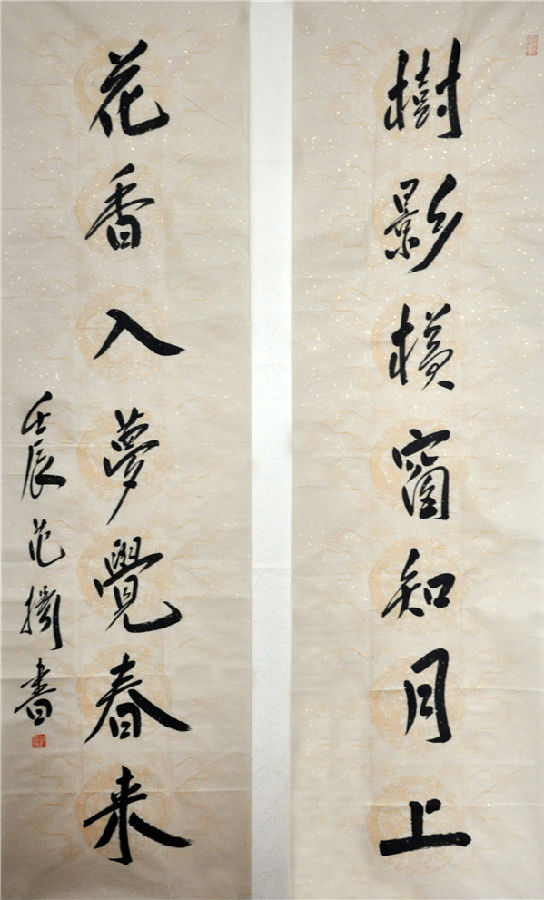 樹影橫窗知月上
花香入夢覺春來
壬辰范擷書